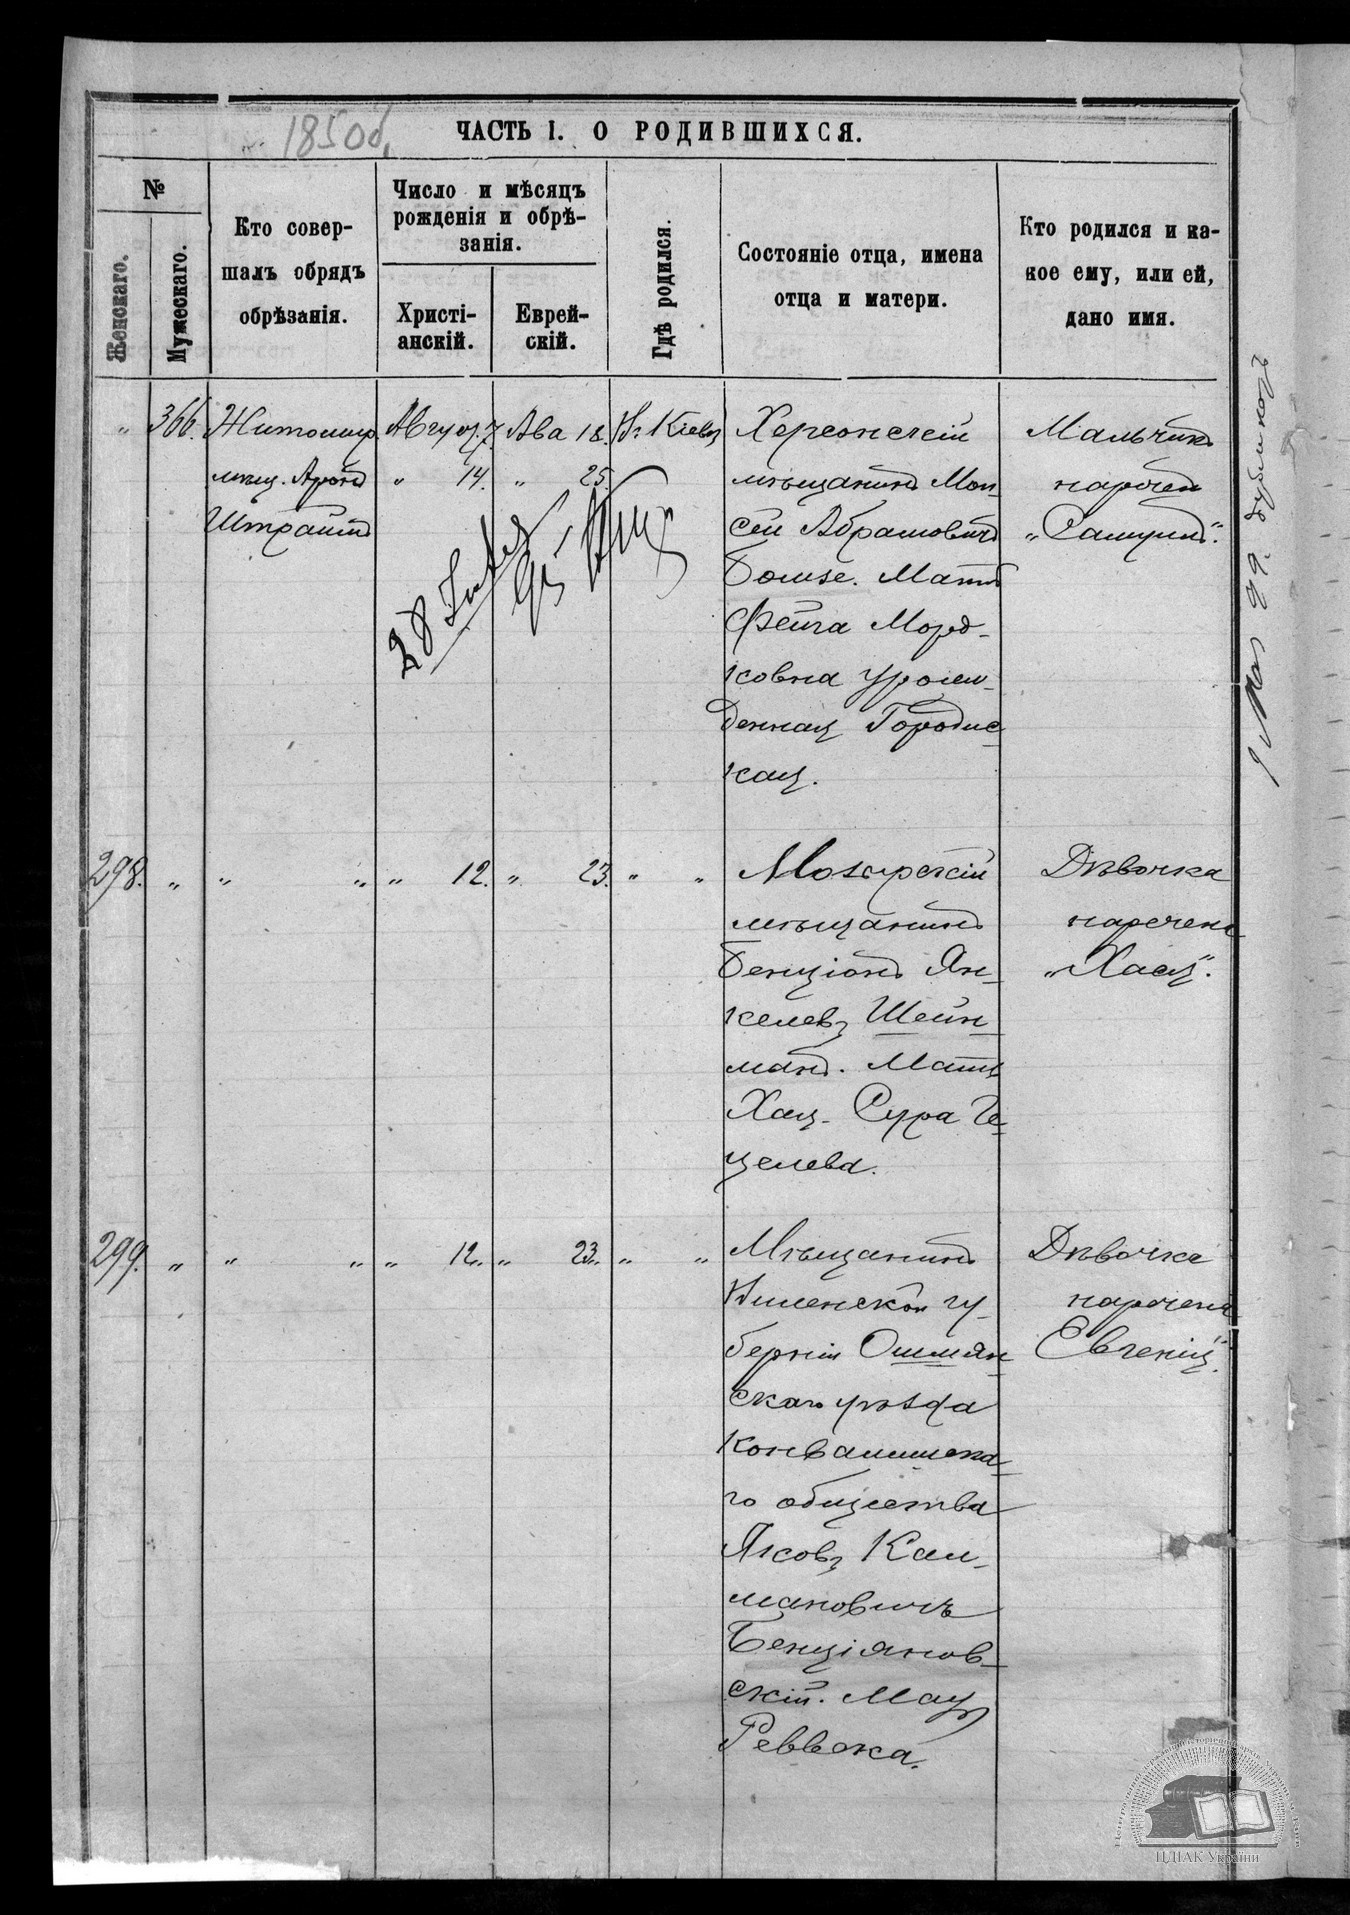 185 об.
ЧАСТЬ I. О РОДИВШИХСЯ.
№
Женскаго.
Мужескаго.
Кто совер-
шалъ обрядъ
обрѣзанія.
Число и мѣсяцъ
рожденія и обрѣ-
занія.
Христі-
анскій.
Еврей-
скій.
Гдѣ родился.
Состояніе отца, имена
отца и матери.
Кто родился и ка-
кое ему, или ей,
дано имя.
„ 366. Житомир. Август. 7. Ава 18. Въ Кіевѣ
мѣщ. Аронъ „ 14. „ 25.
Штраймъ
Херсонскій
мѣщанинъ Мой-
сей Абрамовичъ
Бомзе. Мать
Фейга Морд-
ковна урожд-
денная Городис-
кая.
Мальчикъ
нареченъ
„Самуилъ".
298. „ „ „ „ 12. „ 23. „ „
Мозырскій
мѣщанинъ
Бенціонъ Ян-
келевъ Шейн-
манъ. Мать
Хая-Сура Ге-
целева.
Дѣвочка
наречена
„Хася".
299. „ „ „ „ 12. „ 23. „ „
Мѣщанинъ
Виленской гу-
берніи Ошмян-
скаго уѣзда
Конвалишска-
го общества
Яковъ Кал-
мановичъ
Бенціянов-
скій. Мать
Ревека.
Дѣвочка
наречена
Евгенія".
1 Мая 99. дубликатъ
ЦДІАК України